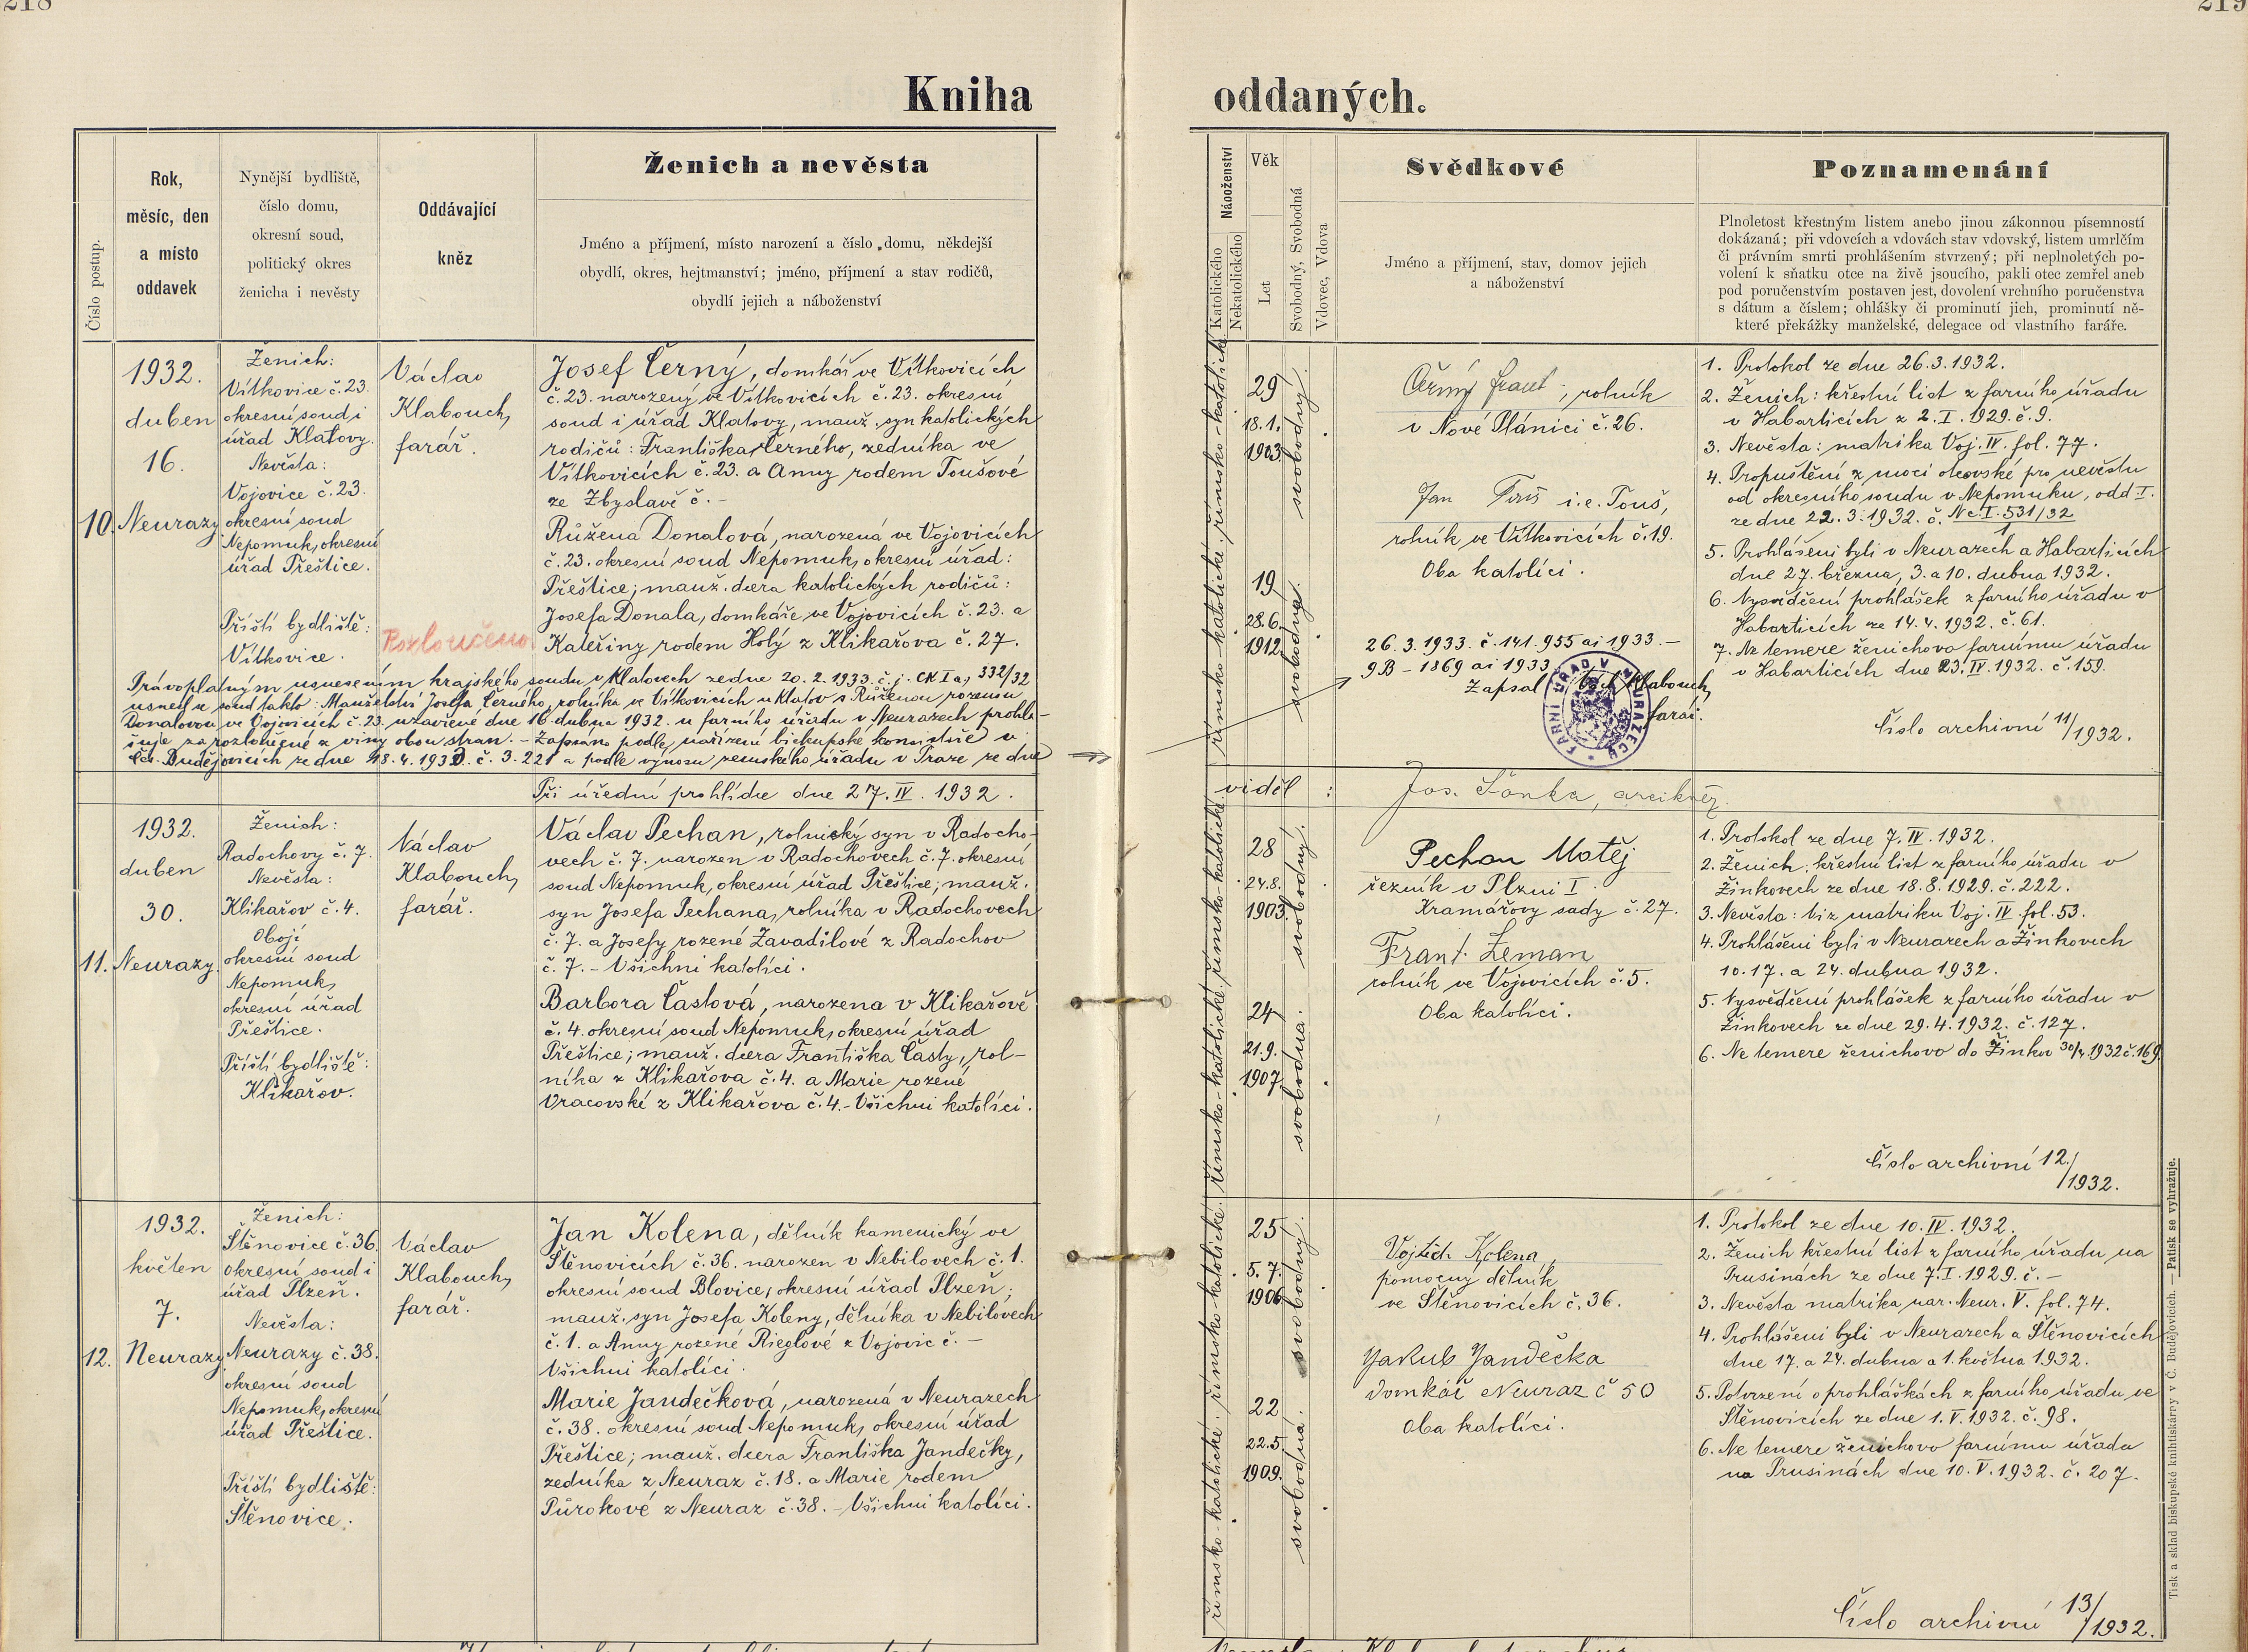 218
219
Kniha
oddaných.
Číslo postup.
Rok,
měsíc, den
a místo
oddavek
Nynější bydliště,
číslo domu,
okresní soud,
politický okres
ženicha i nevěsty
Oddávající
kněz
Ženich a nevěsta
Jméno a příjmení, místo narození a číslo domu, někdejší
obydlí, okres, hejtmanství; jméno, příjmení a stav rodičů,
obydlí jejich a náboženství
Náboženství
Katolického
Nekatolického
Věk
Let
Svobodný, Svobodná
Vdovec, Vdova
Svědkové
Jméno a příjmení, stav, domov jejich
a náboženství
Poznamenání
Plnoletost křestným listem anebo jinou zákonnou písemností
dokázaná; při vdovcích a vdovách stav vdovský, listem umrlčím
či právním smrti prohlášením stvrzený; při neplnoletých po-
volení k sňatku otce na živě jsoucího, pakli otec zemřel aneb
pod poručenstvím postaven jest, dovolení vrchního poručenstva
s dátum a číslem; ohlášky či prominutí jich, prominutí ně-
které překážky manželské, delegace od vlastního faráře.
10.
1932.
duben
16.
Neurazy
Ženich:
Vítkovice č. 23.
okresní soud i
úřad Klatovy.
Nevěsta:
Vojovice č. 23.
okresní soud
Nepomuk, okresní
úřad Přeštice.
Příští bydliště:
Vítkovice.
Václav
Klabouch,
farář.
Rozloučeno
Josef Černý, domkář ve Vítkovicích
č. 23. narozený ve Vítkovicích č. 23. okresní
soud i úřad Klatovy, manž. syn katolických
rodičů: Františka Černého, zedníka ve
Vítkovicích č. 23. a Anny rodem Toušové
ze Zbyslavě č. -
Růžena Donalová, narozená ve Vojovicích
č. 23. okresní soud Nepomuk, okresní úřad:
Přeštice; manž. dcera katolických rodičů:
Josefa Donala, domkáře ve Vojovicích č. 23. a
Kateřiny rodem Holý z Klikařova č. 27.
Právoplatným usnesením krajského soudu v Klatovech ze dne 20. 2. 1933. č. j. CK I a, 332/32
usnesl se soud takto: Manželství Josefa Černého, rolníka ve Vítkovicích u Klatov s Růženou rozenou
Donalovou ve Vojovicích č. 23. uzavřené dne 16. dubna 1932. u farního úřadu v Neurazech prohla-
šuje za rozloučené z viny obou stran. - Zapsáno podle nařízení biskupské konsistoře v
Čes. Budějovicích ze dne 18. 4. 1933. č. 3.221 a podle výnosu zemského úřadu v Praze ze dne
římsko-katolické. římsko-katolické.
29
18. 1.
1903.
svobodný.
19
28. 6.
1912.
svobodná.
Černý Frant., rolník
v Nové Plánici č. 26.
Jan Touš i. e. Touš,
rolník ve Vítkovicích č. 19.
Oba katolíci.
26. 3. 1933. č. 141.955 ai 1933. -
9B - 1869 ai 1933
Zapsal Vác. Klabouch,
farář.
FARNÍ ÚŘAD V NEURAZECH
1. Protokol ze dne 26. 3. 1932.
2. Ženich: křestní list z farního úřadu
v Habarticích z 2. I. 1929. č. 9.
3. Nevěsta: matrika Voj. IV. fol. 77.
4. Propuštění z moci otcovské pro nevěstu
od okresního soudu v Nepomuku, odd I.
ze dne 22. 3. 1932. č. Nc. I. 531/32
5. Prohlášeni byli v Neurazech a Habarticích
dne 27. března, 3. a 10. dubna 1932.
6. Vysvědčení prohlášek z farního úřadu v
Habarticích ze 14. 4. 1932. č. 61.
7. Ne temere ženichovo farnímu úřadu
v Habarticích dne 23. IV. 1932. č. 159.
Číslo archivní 11/1932.
Při úřední prohlídce dne 27. IV. 1932.
viděl:
Jos. Šonka, arcikněz.
11.
1932.
duben
30.
Neurazy.
Ženich:
Radochovy č. 7.
Nevěsta:
Klikařov č. 4.
Obojí
okresní soud
Nepomuk,
okresní úřad
Přeštice.
Příští bydliště:
Klikařov.
Václav
Klabouch,
farář.
Václav Pechan, rolnický syn v Radocho-
vech č. 7. narozen v Radochovech č. 7. okresní
soud Nepomuk, okresní úřad Přeštice; manž.
syn Josefa Pechana, rolníka v Radochovech
č. 7. a Josefy rozené Zavadilové z Radochov
č. 7. - Všichni katolíci.
Barbora Častová, narozena v Klikařově
č. 4. okresní soud Nepomuk, okresní úřad
Přeštice; manž. dcera Františka Časty, rol-
níka z Klikařova č. 4. a Marie rozené
Vracovské z Klikařova č. 4. - Všichni katolíci.
římsko-katolické. římsko-katolické.
28
24. 8.
1903.
svobodný.
24
21. 9.
1907
svobodna.
Pechan Matěj
řezník v Plzni I
Kramářovy sady č. 27.
Frant. Zeman
rolník ve Vojovicích č. 5.
Oba katolíci.
1. Protokol ze dne 7. IV. 1932.
2. Ženich: křestní list z farního úřadu v
Žinkovech ze dne 18. 8. 1929. č. 222.
3. Nevěsta: viz matriku Voj. IV. fol. 53.
4. Prohlášeni byli v Neurazech a Žinkovech
10. 17. a 24. dubna 1932.
5. Vysvědčení prohlášek z farního úřadu v
Žinkovech ze dne 29. 4. 1932. č. 127.
6. Ne temere ženichovo do Žinkov 30/4. 1932 č. 169.
Číslo archivní 12./1932.
12.
1932.
květen
7.
Neurazy
Ženich:
Štěnovice č. 36.
okresní soud i
úřad Plzeň.
Nevěsta:
Neurazy č. 38.
okresní soud
Nepomuk, okresní
úřad Přeštice.
Příští bydliště:
Štěnovice.
Václav
Klabouch,
farář.
Jan Kolena, dělník kamenický ve
Štěnovicích č. 36. narozen v Nebilovech č. 1.
okresní soud Blovice, okresní úřad Plzeň;
manž. syn Josefa Koleny, dělníka v Nebilovech
č. 1. a Anny rozené Rieglové z Vojovic č. -
Všichni katolíci.
Marie Jandečková, narozená v Neurazech
č. 38. okresní soud Nepomuk, okresní úřad
Přeštice; manž. dcera Františka Jandečky,
zedníka z Neuraz č. 18. a Marie rodem
Půrokové z Neuraz č. 38. - Všichni katolíci.
římsko-katolické. římsko-katolické.
25
5. 7.
1906
svobodný.
22
22. 5
1909.
svobodná.
Vojtěch Kolena,
pomocny dělník
ve Štěnovicích č. 36.
Jakub Jandečka
domkář Neuraz č 50
Oba katolíci.
1. Protokol ze dne 10. IV. 1932.
2. Ženich křestní list z farního úřadu na
Prusinách ze dne 7. I. 1929. č. -
3. Nevěsta matrika nar. Neur. V. fol. 74.
4. Prohlášeni byli v Neurazech a Štěnovicích
dne 17. a 24. dubna a 1. května 1932.
5. Potvrzení o prohláškách z farního úřadu ve
Štěnovicích ze dne 1. V. 1932. č. 98.
6. Ne temere ženichovo farnímu úřadu
na Prusinách dne 10. V. 1932. č. 207.
Číslo archivní 13/1932.
Tisk a sklad biskupské knihtiskárny v Č. Budějovicích. — Patisk se vyhražuje.